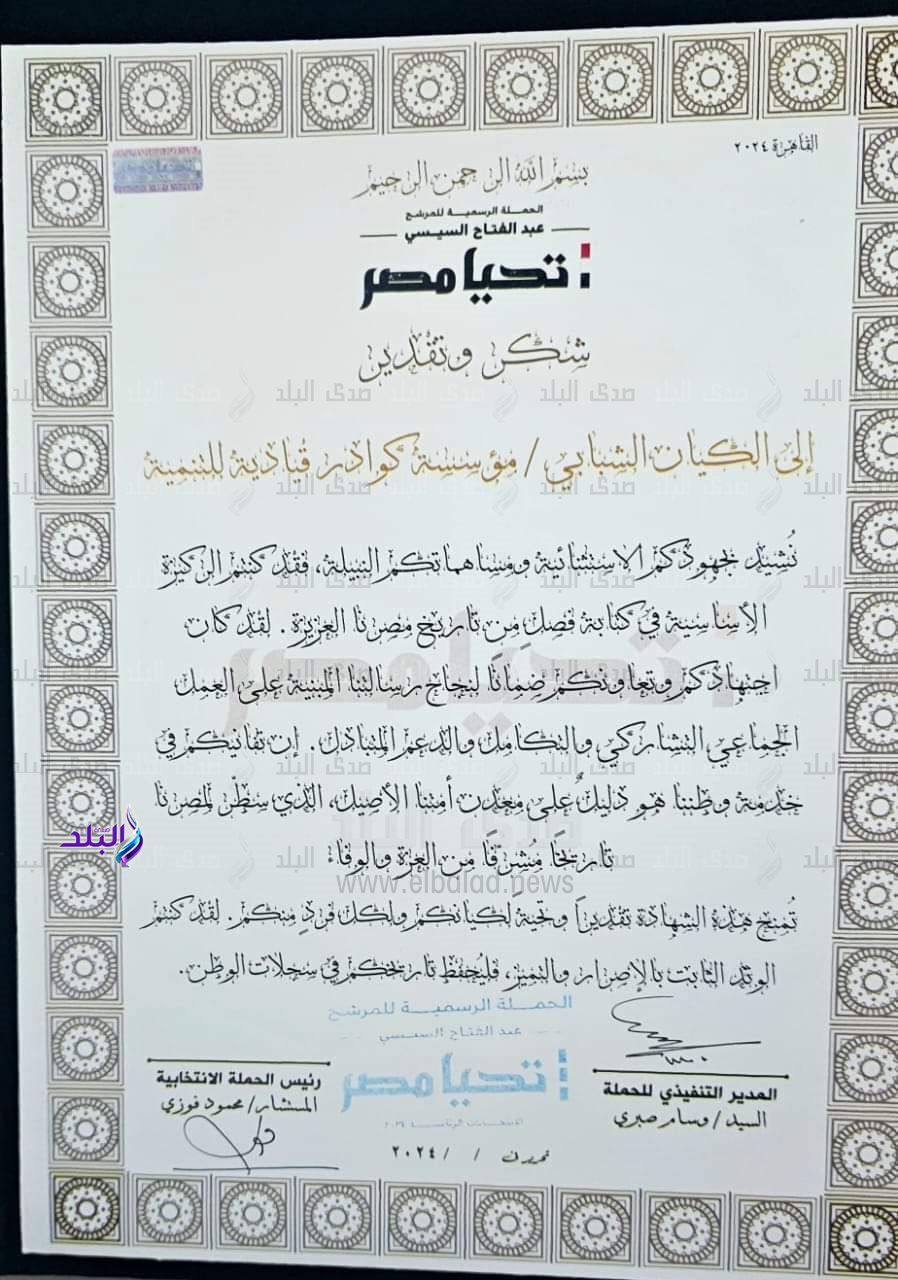 القاهرة ٢٠٢٤
بسم الله الرحمن الرحيم
الحملة الرسمية للمرشح
عبد الفتاح السيسي
تحيا مصر
شكر وتقدير
إلى الكيان الشبابي / مؤسسة كوادر قيادية للتنمية
نُشيد بجهودكم الاستثنائية ومساهماتكم النبيلة، فقد كنتم الركيزة
الأساسية في كتابة فصلٍ من تاريخ مصرنا العزيزة. لقد كان
اجتهادكم وتعاونكم ضمانًا لنجاح رسالتنا المبنية على العمل
الجماعي التشاركي والتكامل والدعم المتبادل. إن تفانيكم في
خدمة وطننا هو دليلٌ على معدن أمتنا الأصيل، الذي سطّر لمصرنا
تاريخًا مُشرقًا من العزة والوفاء
تُمنح هذه الشهادة تقديراً وتحية لكيانكم ولكل فردٍ منكم. لقد كنتم
الوتد الثابت بالإصرار والتميز، فليُحفظ تاريخكم في سجلات الوطن.
الحملة الرسمية للمرشح
عبد الفتاح السيسي
تحيا مصر
الانتخابات الرئاسية ٢٠٢٤
المدير التنفيذي للحملة
السيد / وسام صبري
رئيس الحملة الانتخابية
المستشار / محمود فوزي
تحرر في / / ٢٠٢٤
صدى البلد
www.elbalad.news